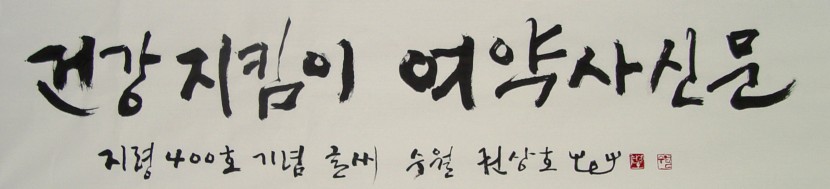 건강 지킴이 여약사신문
지령 400호 기념 글씨 수월 권상호